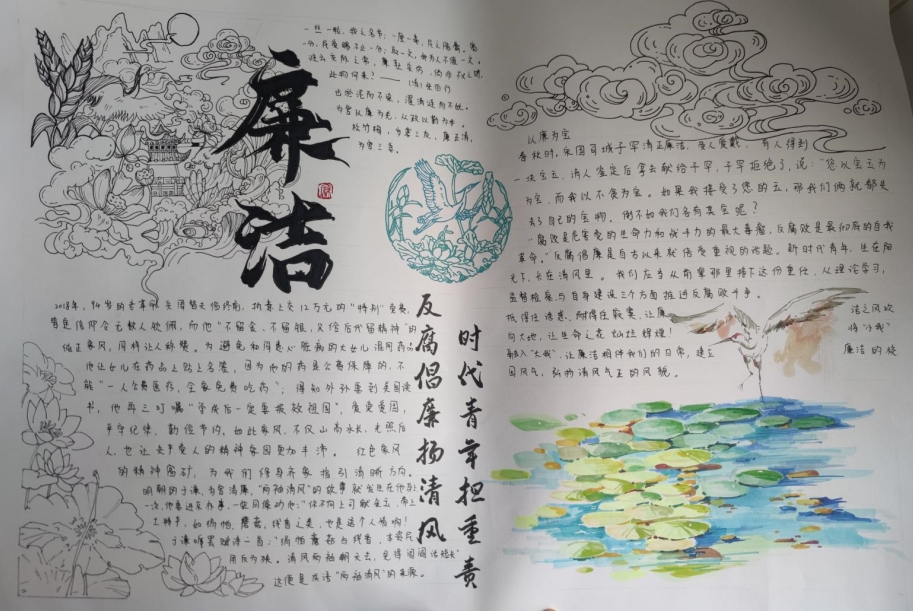 廉洁
一丝一粒,我之名节;一厘一毫,民之脂膏。宽
一分,民受赐不止一分;取一文,我为人不值一文。
此物何来?——(清)张伯行
出淤泥而不染,濯清涟而不妖。
为官以廉为先,从政以勤为本。
松竹梅,岁寒三友,廉正清,
为官三要。
2018年,94岁的老革命
临终前,执意上交12万元的“特别”党费,
而他“不留金、不留银,只给后代留精神”的
纯正家风,同样让人称赞。为避免和同患心脏病的大女儿混用药品,
他让女儿在药品上贴上名签,因为他的药是公费保障的,不
能“一人公费医疗,全家免费吃药”;得知外孙要到美国读
书,他再三叮嘱“学成后一定要报效祖国”,爱党爱国,
严守纪律、勤俭节约,如此家风,不仅山高水长,光照后
人,也让共产党人的精神家园更加丰沛。红色家风
的精神富矿,为我们修身齐家指引清晰方向。
明朝的于谦,为官清廉,“两袖清风”的故事就发生在他身上
一次,他要进京办事,一些同僚劝他:“你不向上司献金玉,带上
土特产,如绢帕、蘑菇、线香之类,也是送个人情啊!
于谦挥笔赋诗一首:“绢帕蘑菇与线香,本资民
用反为殃。清风两袖朝天去,免得闾阎话短长”
这便是成语“两袖清风”的来源。
反腐倡廉扬清风
时代青年担重责
以廉为宝
春秋时,宋国司城子罕清正廉洁,受人爱戴。有人得到
一块宝玉,请人鉴定后拿去献给子罕,子罕拒绝了,说:“您以宝玉为
为宝,而我以不贪为宝。如果我接受了您的玉,那我们俩就都失
去了自己的宝物。倒不如我们各有其宝呢?
“腐败是危害党的生命力和战斗力的最大毒瘤,反腐败是最彻底的自我
革命。”反腐倡廉是自古以来就倍受重视的话题。新时代青年,生在阳
光下,长在清风里。我们应当从前辈那里接下这份重任,从理论学习,
监督检察与自身建设三个方面推进反腐败斗争。
抵得住诱惑,耐得住寂寞,让廉洁之风吹
向大地,让生命之花灿烂辉煌!将“小我”
融入“大我”,让廉洁相伴我们的日常,建立廉洁的
国风气,弘扬清风气正的风貌。